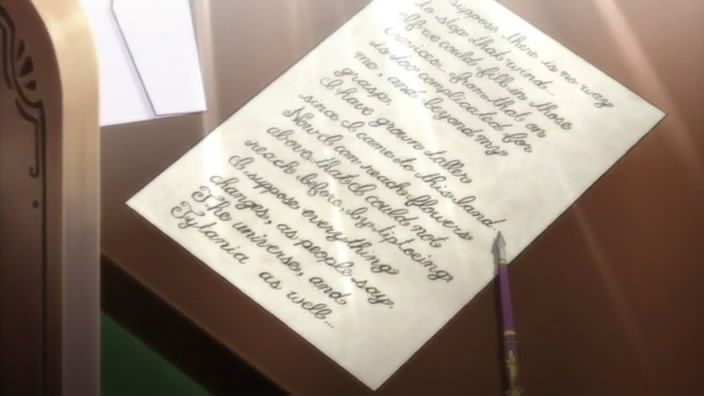 suppose there is no way
to stop that wind...
If we could fill in those
crevices... from that on
is too complicated for
me, and beyond my
grasp.
I have grown taller
since I came to this land.
Now I can reach flowers
above that I could not
reach before, by tiptoeing.
I suppose everything
changes, as people say.
The universe, and
Tytania as well...